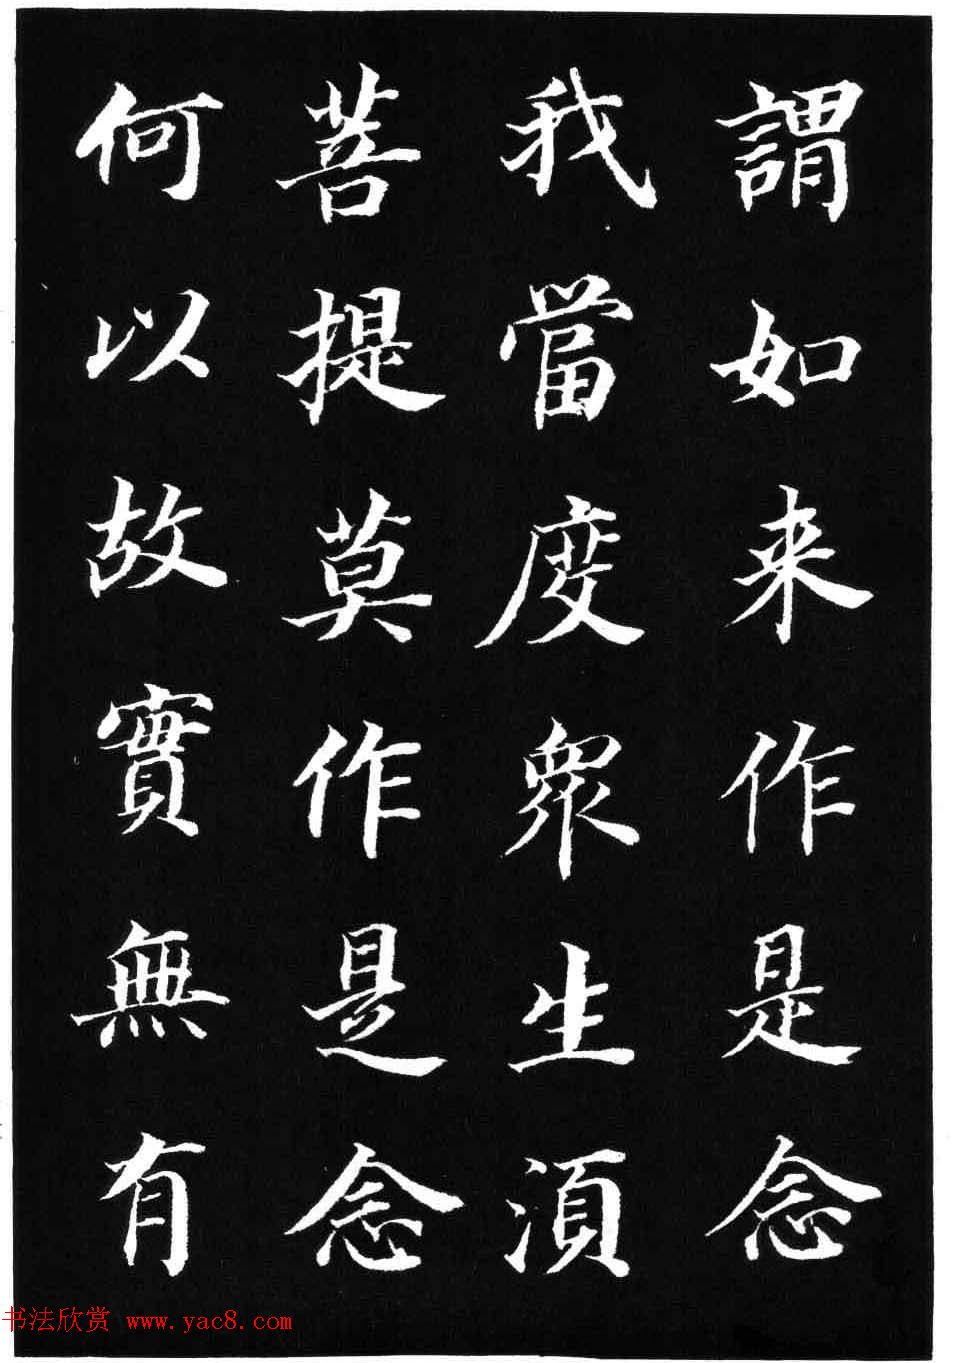 謂如来作是念
我當度衆生湏
菩提莫作是念
何以故實無有
书法欣赏 www.yac8.com